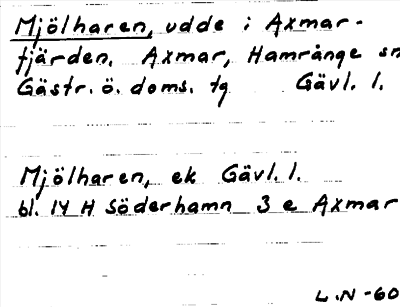 Mjölharen, udde i Axmar-
fjärden. Axmar, Hamrånge sn
Gästr. ö. doms. tg Gävl. l.
Mjölharen, ek Gävl. l.
bl. 14 H Söderhamn 3 e Axmar
L.N -60